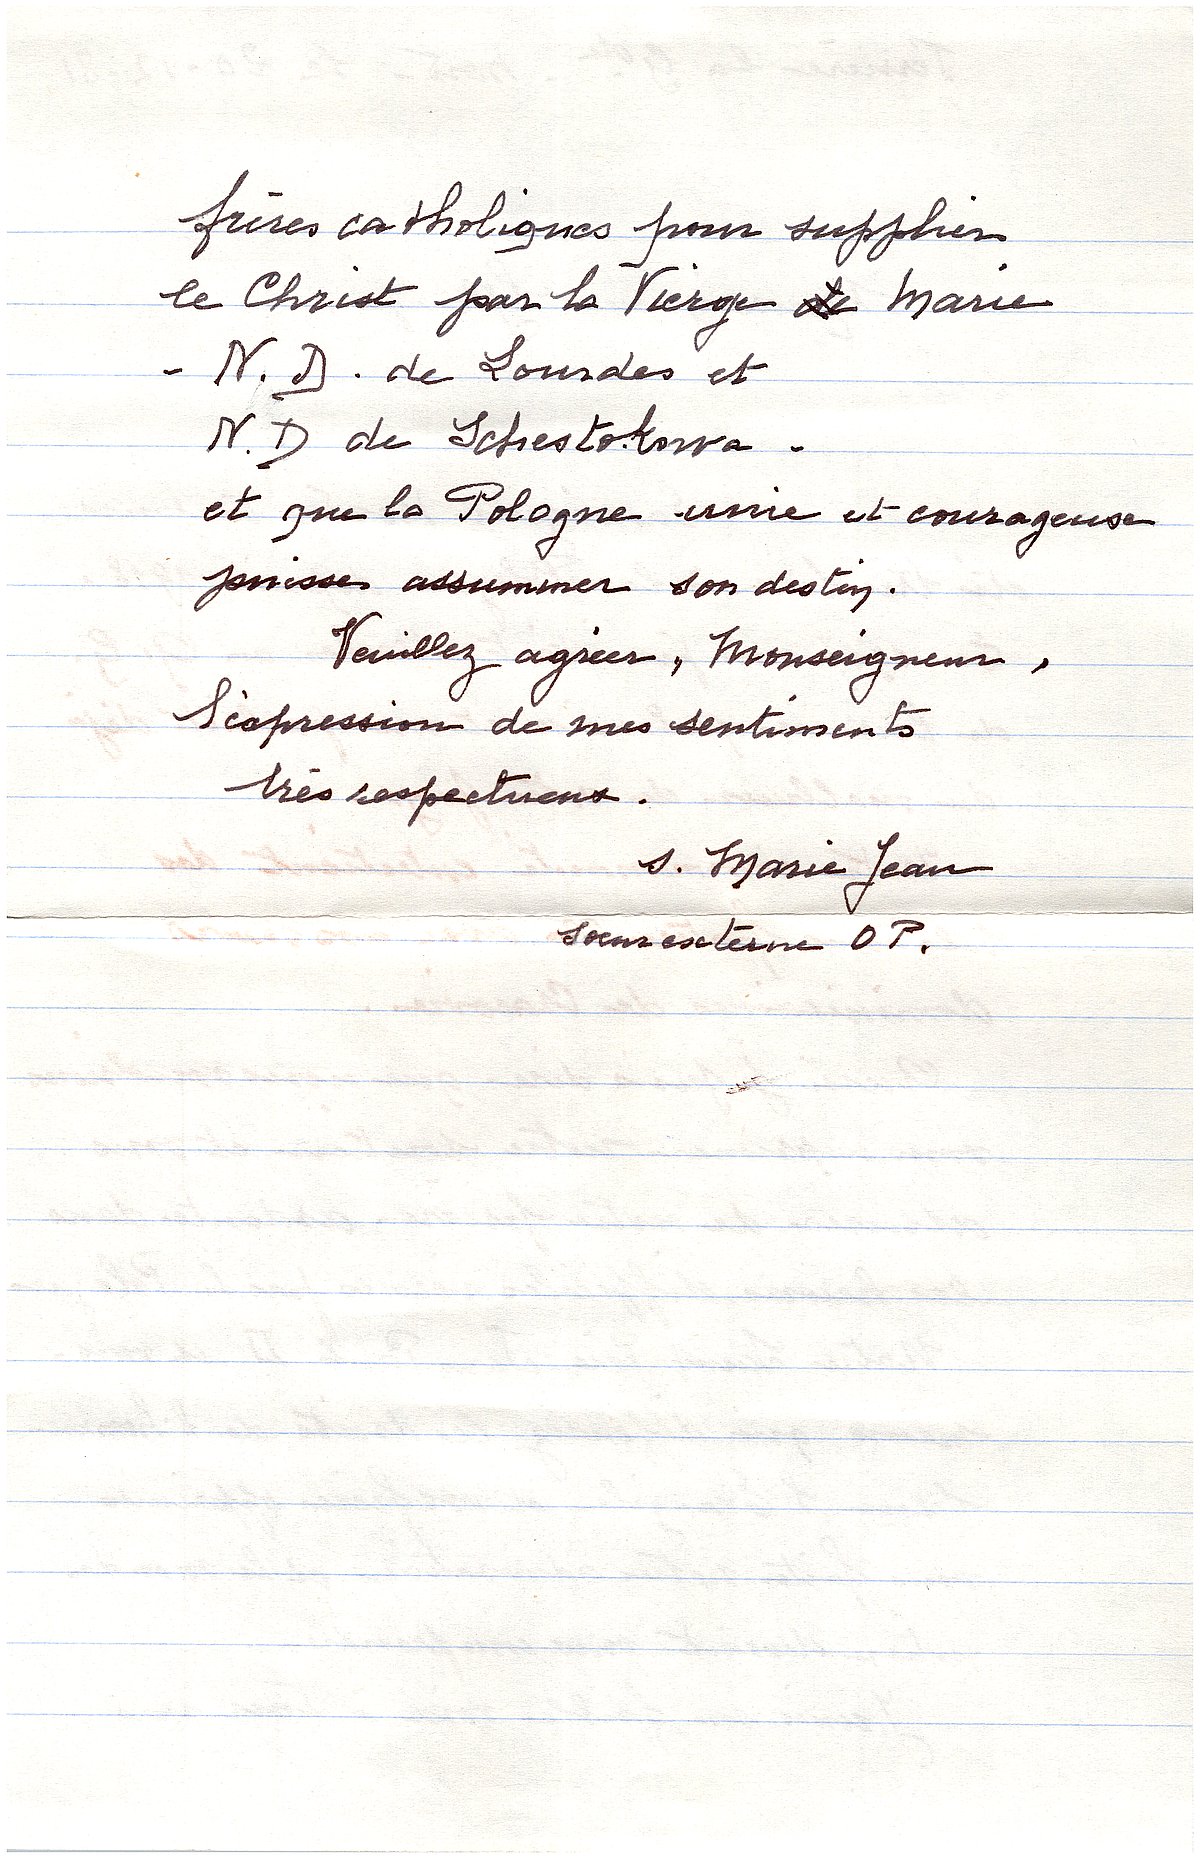 frères catholiques pour supplier
le Christ par la Vierge de Marie
- N. D. de Lourdes et
N. D de Schestokowa -
et que la Pologne unie et courageuse
puisse assummer son destin.
Veuillez agréer, Monseigneur,
l'expression de mes sentiments
très respectueux.
s. Marie Jean
soeur externe O P.